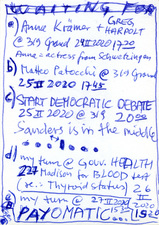 WAITING FOR
a) Anne Krämer GREG THARPOLT
@ 319 Grand 24 II 2020 17 20
Anne = actress from Schwetzingen
b) Matteo Patocchi @ 319 Grand
25 II 2020 17 45
c) START DEMOCRATIC DEBATE
25 II 2020 @ 319 20 00
Sanders is in the middle
d) my turn @ Gouv. HEALTH
227 Madison for BLOOD test
Thyroid status) 26 II 2020
my turn @ 27 II 2020
PAYOMATIC 15 20